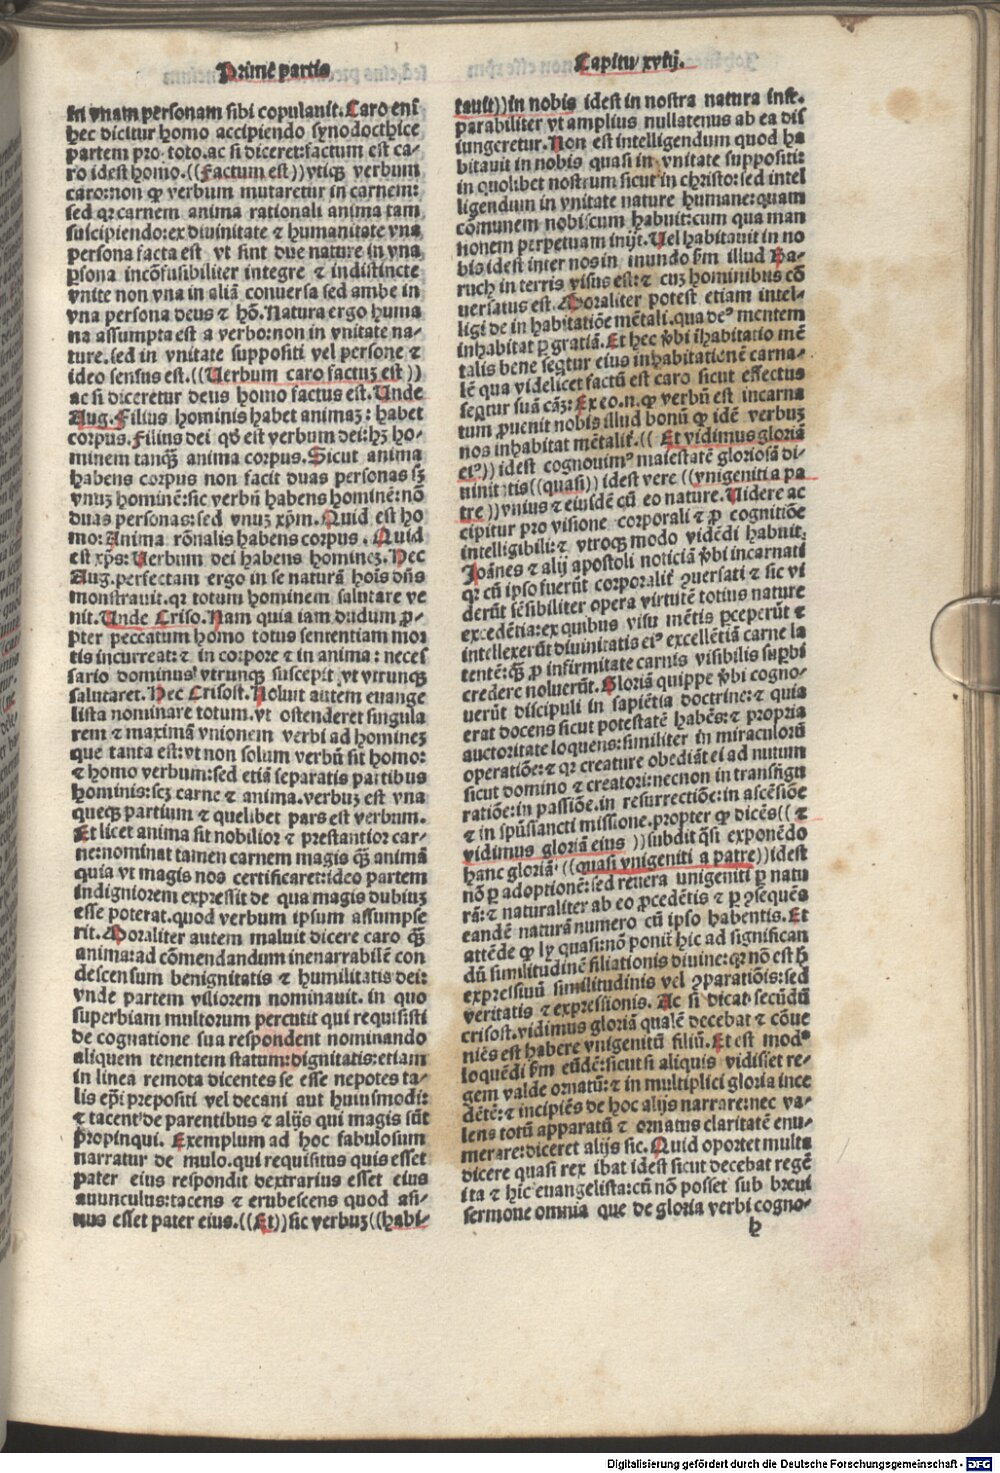 Prime partis
Capitu xviij.
in vnam personam sibi copulanit. Caro eni
hec dicitur homo accipiendo synodochice
partem pro toto. ac si diceret: factum est ca-
ro idest homo. ((Factum est)) vtiqȝ verbum
caro: non ꝙ verbum mutaretur in carnem:
sed qꝛ carnem anima rationali animatam
suscipiendo: ex diuinitate ⁊ humanitate vna
persona facta est vt sint due nature in vna
p̱sona incōfusibiliter integre ⁊ indistincte
vnite non vna in aliā conuersa sed ambe in
vna persona deus ⁊ hō. Natura ergo huma
na assumpta est a verbo: non in vnitate na-
ture. sed in vnitate suppositi vel persone ⁊
ideo sensus est. ((Uerbum caro factuȝ est))
ac si diceretur deus homo factus est. Unde
Aug. Filius hominis habet animaȝ: habet
corpus. Filius dei qḋ est verbum dei: hȝ ho-
minem tanqȝ̄ anima corpus. Sicut anima
habens corpus non facit duas personas sȝ
vnuȝ hominē: sic verbū habens hominē: nō
duas personas: sed vnuȝ xp̄m. Quid est ho
mo: Anima rōnalis habens corpus. Quid
est xp̄s: Uerbum dei habens homineȝ. Hec
Aug. perfectam ergo in se naturā hoīs dn̄s
monstrauit. qꝛ totum hominem saluare ve
nit. Unde Criso. Nam quia iam dudum ꝓ-
pter peccatum homo totus sententiam mor
tis incurreat: ⁊ in corpore ⁊ in anima: neces
sario dominus vtrunqȝ suscepit vt vtrunqȝ
saluaret. Hec Crisost. Noluit autem euange
lista nominare totum. vt ostenderet singula
rem ⁊ maximā vnionem verbi ad homineȝ
que tanta est: vt non solum verbū sit homo:
⁊ homo verbum: sed etiā separatis partibus
hominis: scȝ carne ⁊ anima. verbuȝ est vna
queqȝ partium ⁊ quelibet pars est verbum.
Et licet anima sit nobilior ⁊ prestantior car-
ne: nominat tamen carnem magis qȝ̄ animā
quia vt magis nos certificaret: ideo partem
indigniorem expressit de qua magis dubiuȝ
esse poterat. quod verbum ipsum assumpse
rit. Moraliter autem maluit dicere caro qȝ̄
anima: ad cōmendandum inenarrabilē con
descensum benignitatis ⁊ humilitatis dei:
vnde partem viliorem nominauit. in quo
superbiam multorum percutit qui requisiti
de cognatione sua respondent nominando
aliquem tenentem statum: dignitatis: etiam
in linea remota dicentes se esse nepotes ta-
lis ep̄i prepositi vel decani aut huiusmodi:
⁊ tacent de parentibus ⁊ alijs qui magis sūt
ꝓpinqui. Exemplum ad hoc fabulosum
narratur de mulo. qui requisitus quis esset
pater eius respondit dextrarius esset eius
auunculus: tacens ⁊ erubescens quod asi-
nus esset pater eius. ((Et)) sic verbuȝ ((habi-
tauit)) in nobis idest in nostra natura inse.
parabiliter vt amplius nullatenus ab ea dis
iungeretur. Non est intelligendum quod ha
bitauit in nobis quasi in vnitate suppositi:
in quolibet nostrum sicut in christo: sed intel
ligendum in vnitate nature humane: quam
cōmunem nobiscum habuit: cum qua man
sionem perpetuam inijt. Uel habitauit in no
bis idest inter nos in mundo ẜm illud Ba-
ruch in terris visus est: ⁊ cuȝ hominibus cō
uersatus est. Moraliter potest etiam intel-
ligi de inhabitatiōe mētali. qua deꝰ mentem
inhabitat ꝑ gratiā. Et hec v̄bi īhabitatio mē
talis bene seqtur eius inhabitationē carna-
lē qua videlicet factū est caro sicut effectus
seqtur suā cāȝ: Ex eo. n. ꝙ verbū est incarna
tum ꝓuenit nobis illud bonū ꝙ idē verbuȝ
nos inhabitat mētalit̄. ((Et vidimus gloriā
eiꝰ)) idest cognouimꝰ maiestatē gloriosā di-
uinitatis ((quasi)) idest vere ((vnigeniti a pa
tre)) vnius ⁊ eiusdē cū eo nature. Uidere ac
cipitur pro visione corporali ⁊ ꝓ cognitiōe
intelligibili: ⁊ vtroqȝ modo vidēdi habuit.
Joānes ⁊ alij apostoli noticiā v̄bi incarnati
qꝛ cū ipso fuerūt corporalit̄ ꝯuersati ⁊ sic vi
derūt sēsibiliter opera virtutē totius nature
excedētia: ex quibus visu mētis ꝑceperūt ⁊
intellexerūt diuinitatis eiꝰ excellētiā carne la
tentē: qȝ̄ ꝓ infirmitate carnis visibilis suꝑbi
credere noluerūt. Gloriā quippe v̄bi cogno-
uerūt discipuli in sapiētia doctrine: ⁊ quia
erat docens sicut potestatē habēs: ⁊ propria
auctoritate loquens: similiter in miraculorū
operatiōe: ⁊ qꝛ creature obediāt ei ad nutum
sicut domino ⁊ creatori: necnon in transfigu
ratiōe: in passiōe. in resurrectiōe: in ascēsiōe
⁊ in sp̄ūssancti missione. propter ꝙ dicēs ((⁊
vidimus gloriā eius)) subdit q̄si exponēdo
hanc gloriā. ((quasi vnigeniti a patre)) idest
nō ꝑ adoptionē: sed reuera unigeniti ꝑ natu
rā: ⁊ naturaliter ab eo ꝓcedētis ⁊ ꝑ ꝯsequēs
eandē naturā numero cū ipso habentis. Et
attēde ꝙ ly quasi: nō ponit̄ hic ad significan
dū similitudinē filiationis diuine: qꝛ nō est h̄
expressiuū similitudinis vel ꝯparatiōis: sed
veritatis ⁊ expressionis. Ac si dicat secūdū
crisost. vidimus gloriā qualē decebat ⁊ cōue
niēs est habere vnigenitū filiū. Et est modꝰ
loquēdi ẜm eūdē: sicut si aliquis vidisset re-
gem valde ornatū: ⁊ in multiplici gloria ince
dētē: ⁊ incipiēs de hoc alijs narrare: nec va-
lens totū apparatū ⁊ ornatus claritatē enu-
merare: diceret alijs sic. Quid oportet multa
dicere quasi rex ibat idest sicut decebat regē
ita ⁊ hic euangelista: cū nō posset sub breui
sermone omnia que de gloria verbi cogno-
h
Digitalisierung gefördert durch die Deutsche Forschungsgemeinschaft - DFG